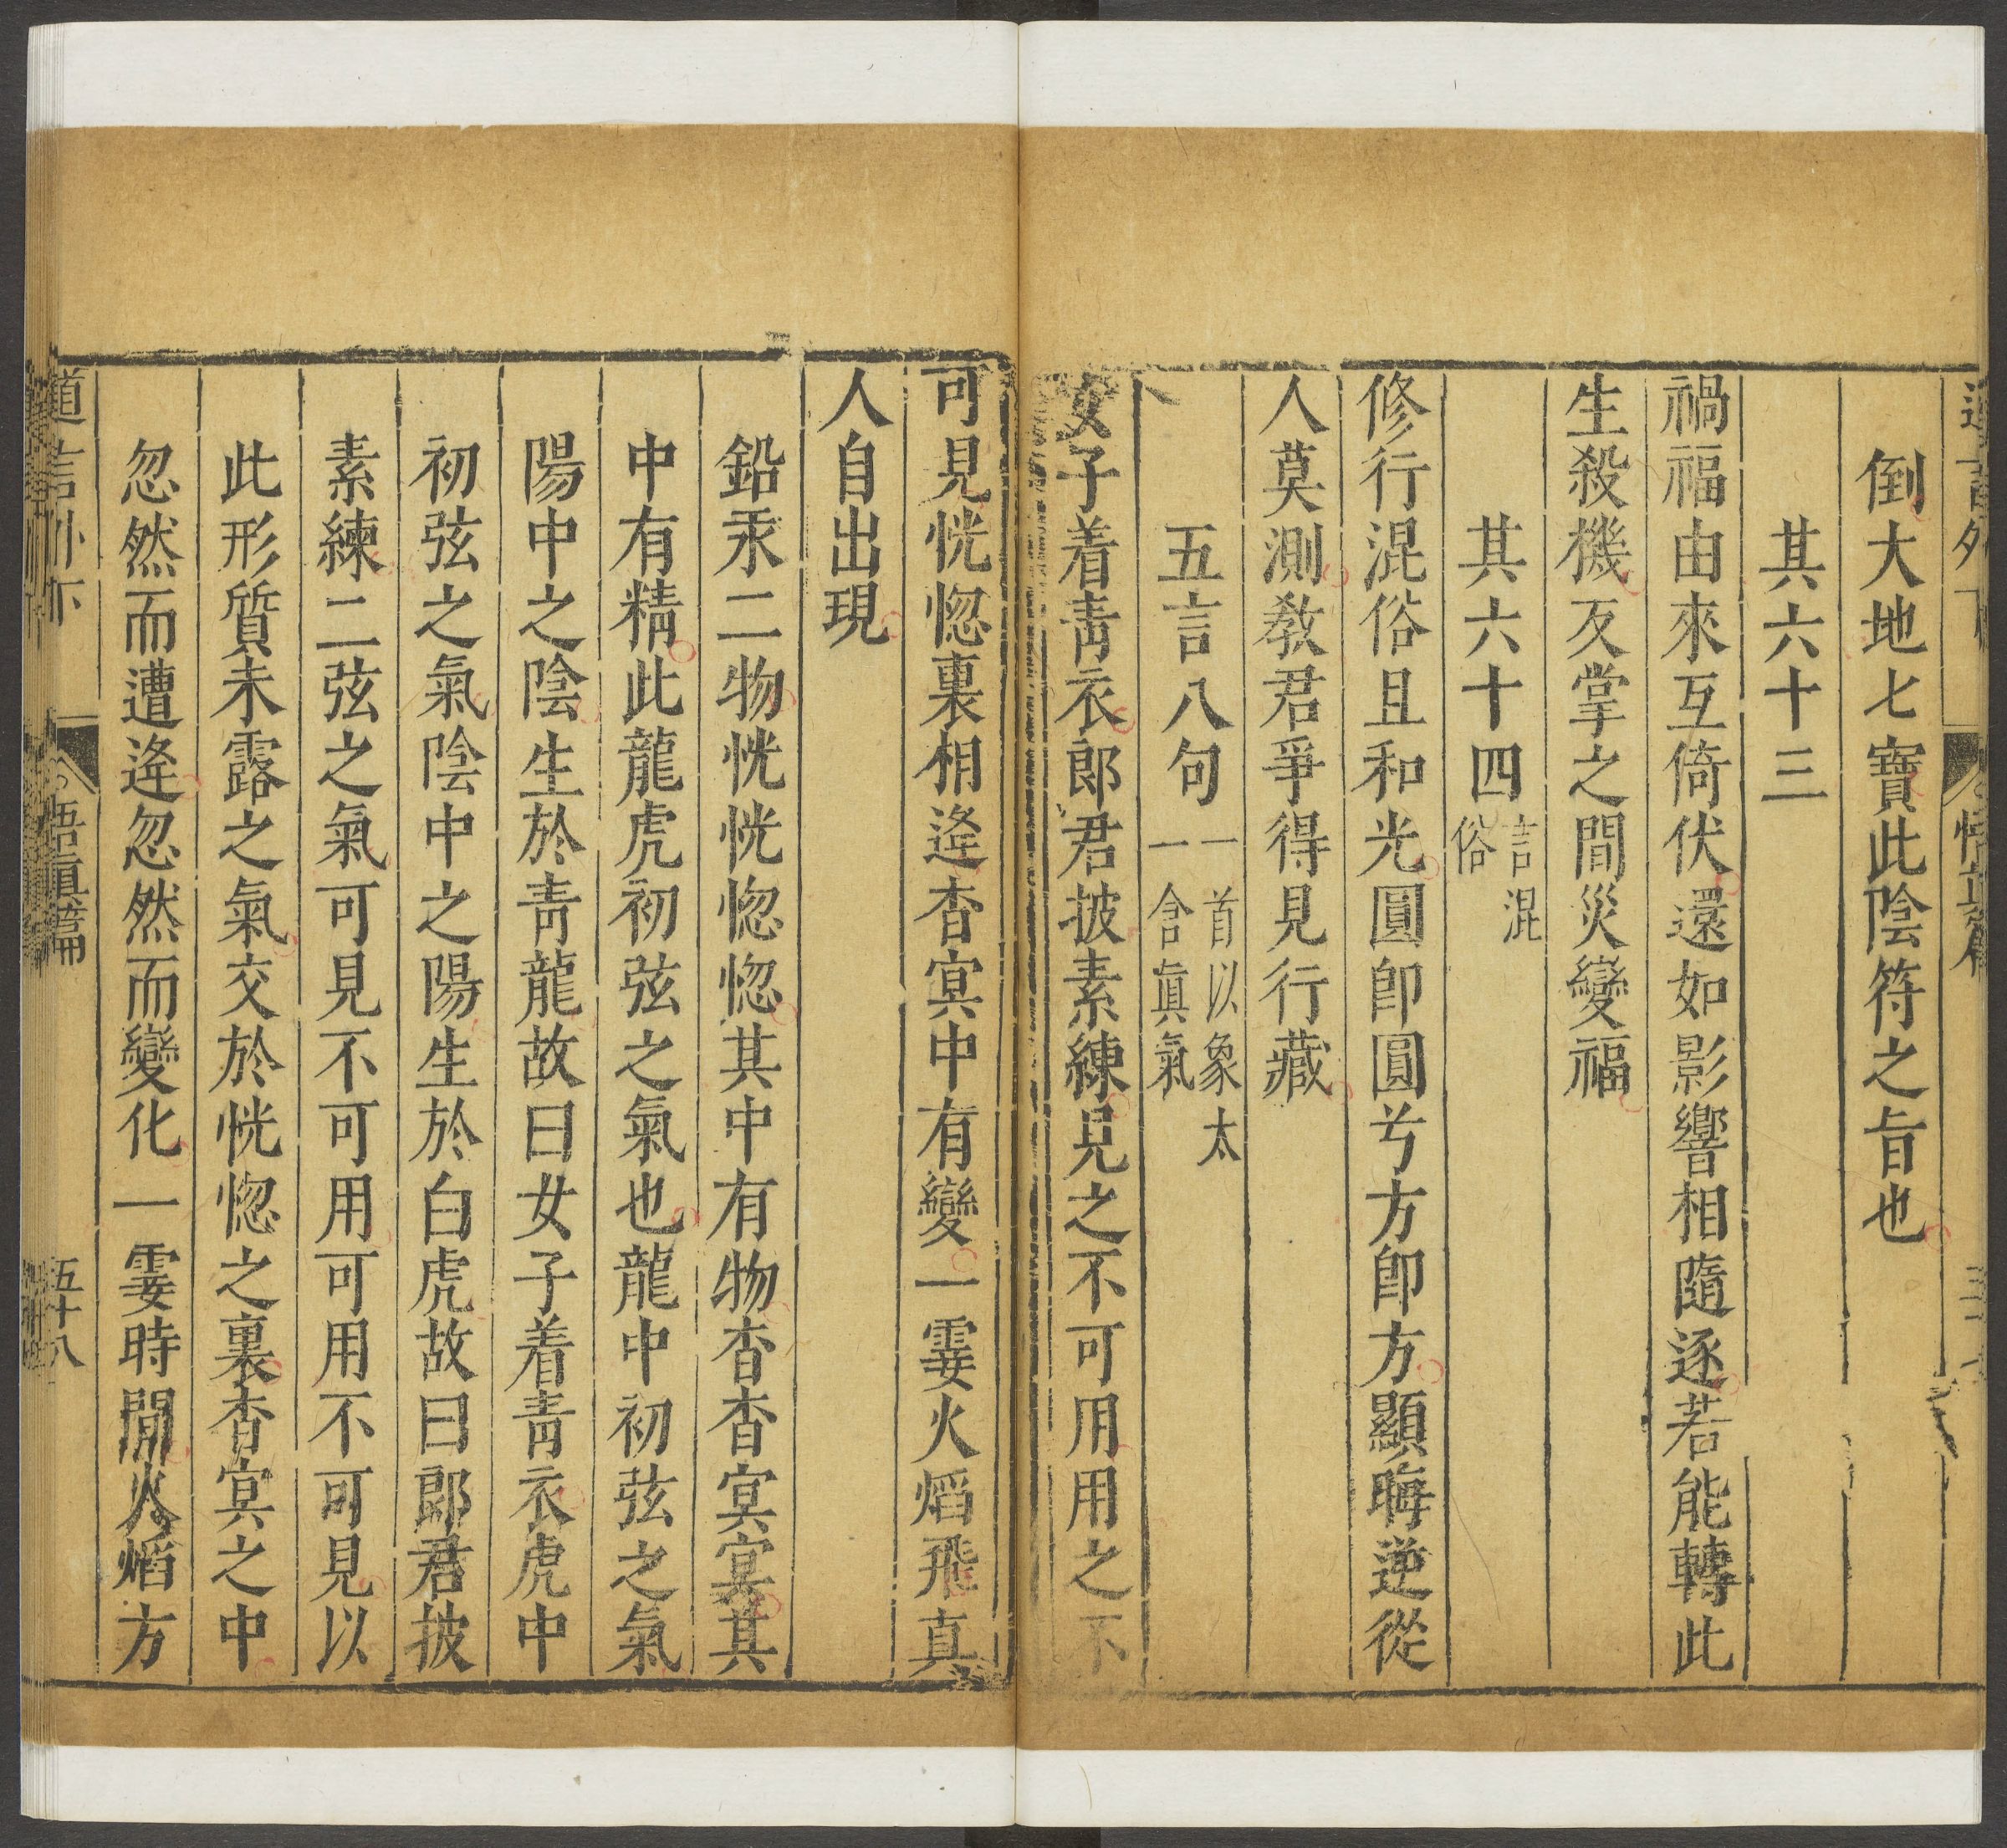 倒大地七寶此陰符之旨也
其六十三
禍福由來互倚伏還如影響相隨逐若能轉此
生殺機反掌之間災變福
其六十四言混俗
修行混俗且和光圓卽圓兮方卽方顯晦逆從
人莫測教君爭得見行藏
五言八句一首以象太一含眞氣
女子着靑衣郎君披素練見之不可用用之不
可見恍惚裏相逢杳冥中有變一霎火焰飛真
人自出現
鉛汞二物恍恍惚惚其中有物杳杳冥冥其
中有精此龍虎初弦之氣也龍中初弦之氣
陽中之陰生於靑龍故曰女子着靑衣虎中
初弦之氣陰中之陽生於白虎故曰郎君披
素練二弦之氣可見不可用可用不可見以
此形質未露之氣交於恍惚之裏杳冥之中
忽然而遭逢忽然而變化一霎時間火焰方
道言外下 悟真篇 五十八